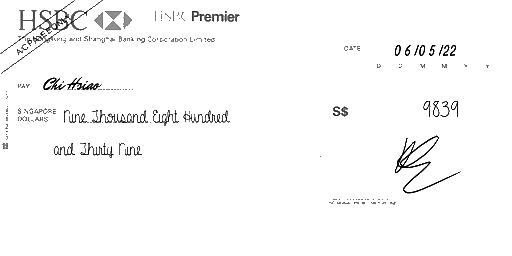 HSBC HSBC Premier
The Hongkong and Shanghai Banking Corporation Limited
A/C PAYEE ONLY
DATE 06/05/22
D D M M Y Y
PAY Chi Hsiao
SINGAPORE DOLLARS Nine Thousand Eight Hundred
and Thirty Nine
S$ 9839